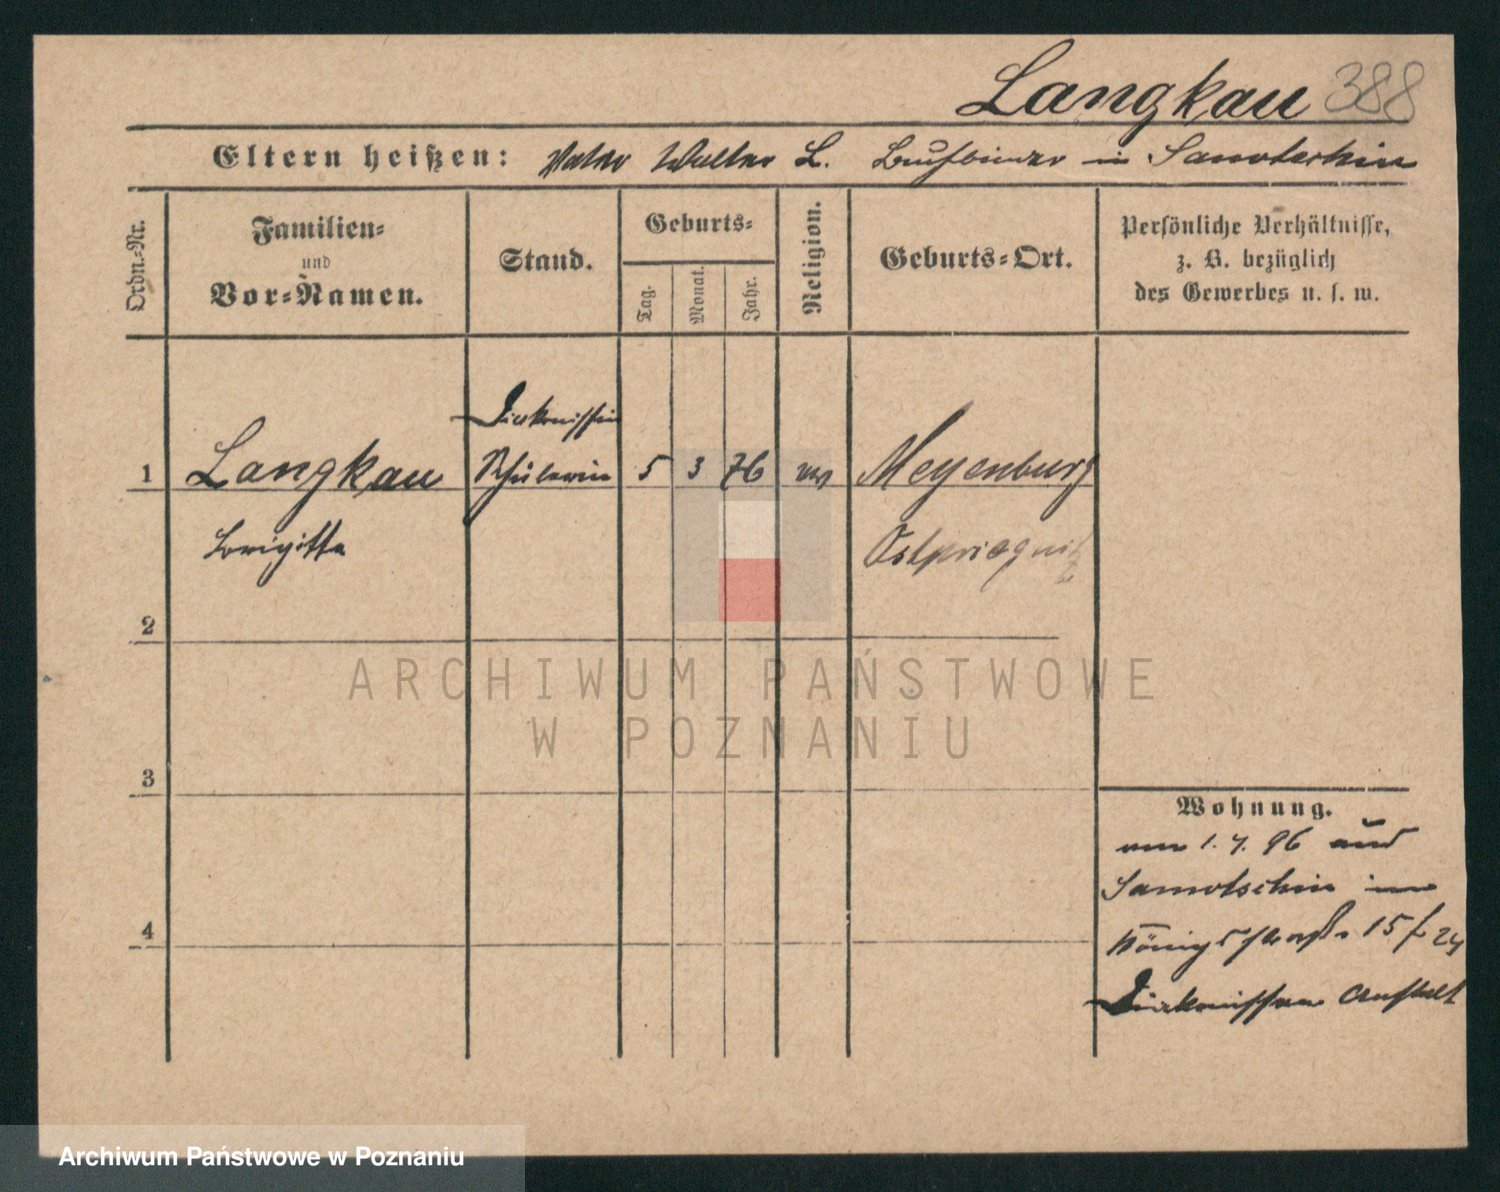 Langkau 388
Eltern heißen: Vater Walter L. Buchbinder in Samotschin
Ordn.-Nr.
Familien-
und
Vor-Namen.
Stand.
Geburts-
Tag.
Monat.
Jahr.
Religion.
Geburts-Ort.
Persönliche Verhältnisse,
z. B. bezüglich
des Gewerbes u. s. w.
Diakonissin
1 Langkau Schülerin 5 3 76 ev Meyenburg
Brigitta Ostpriegnitz
2
ARCHIWUM PAŃSTWOWE
W POZNANIU
3
Wohnung.
1. 4. 96 aus
Samotschin
4
Königsstraße 15
Diakonissen Anstalt
Archiwum Państwowe w Poznaniu